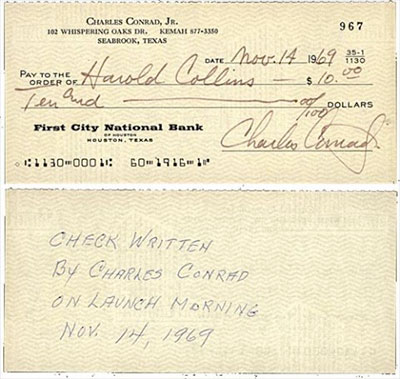 CHARLES CONRAD, JR.
102 WHISPERING OAKS DR. KEMAH 877-3350
SEABROOK, TEXAS
967
DATE Nov. 14 1969 35-1
1130
PAY TO THE
ORDER OF Harold Collins — $ 10.00
Ten and — 00/100 DOLLARS
First City National Bank
OF HOUSTON
HOUSTON, TEXAS
Charles Conrad Jr.
⑆1130⑈0001⑆ 60⑈1916⑈1⑈
CHECK WRITTEN
By CHARLES CONRAD
ON LAUNCH MORNING
NOV. 14, 1969